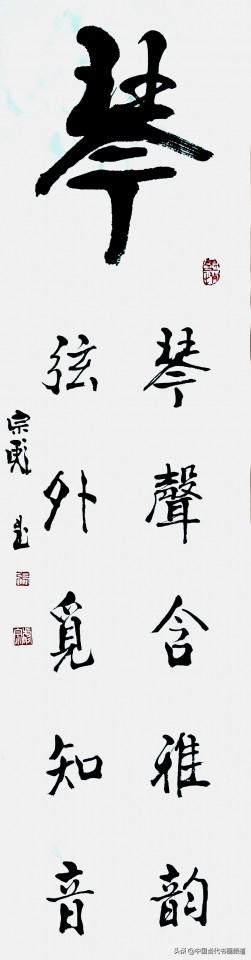 琴
琴聲含雅韵
弦外覓知音
宗
@中国当代书画频道